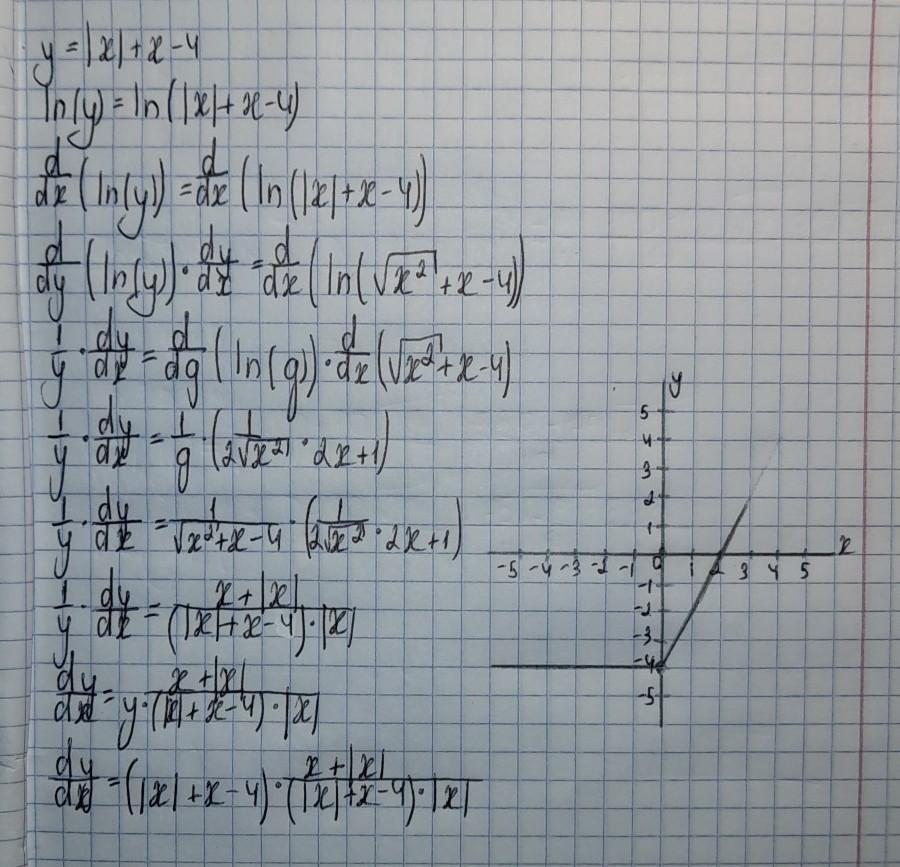 y = |x| + x - 4
ln(y) = ln(|x| + x - 4)
d/dx (ln(y)) = d/dx (ln(|x| + x - 4))
d/dy (ln(y)) · dy/dx = d/dx (ln(√x² + x - 4))
1/y · dy/dx = d/dg (ln(g)) · d/dx (√x² + x - 4)
1/y · dy/dx = 1/g · (1/(2√x²) · 2x + 1)
1/y · dy/dx = 1/(√x² + x - 4) · (1/(2√x²) · 2x + 1)
1/y · dy/dx = (x + |x|)/((|x| + x - 4) · |x|)
dy/dx = (x + |x|)/(y · (|x| + x - 4) · |x|)
dy/dx = (|x| + x - 4) · (x + |x|)/((|x| + x - 4) · |x|)
y
5
4
3
2
1
x
-5 -4 -3 -2 -1 0 1 2 3 4 5
-1
-2
-3
-4
-5